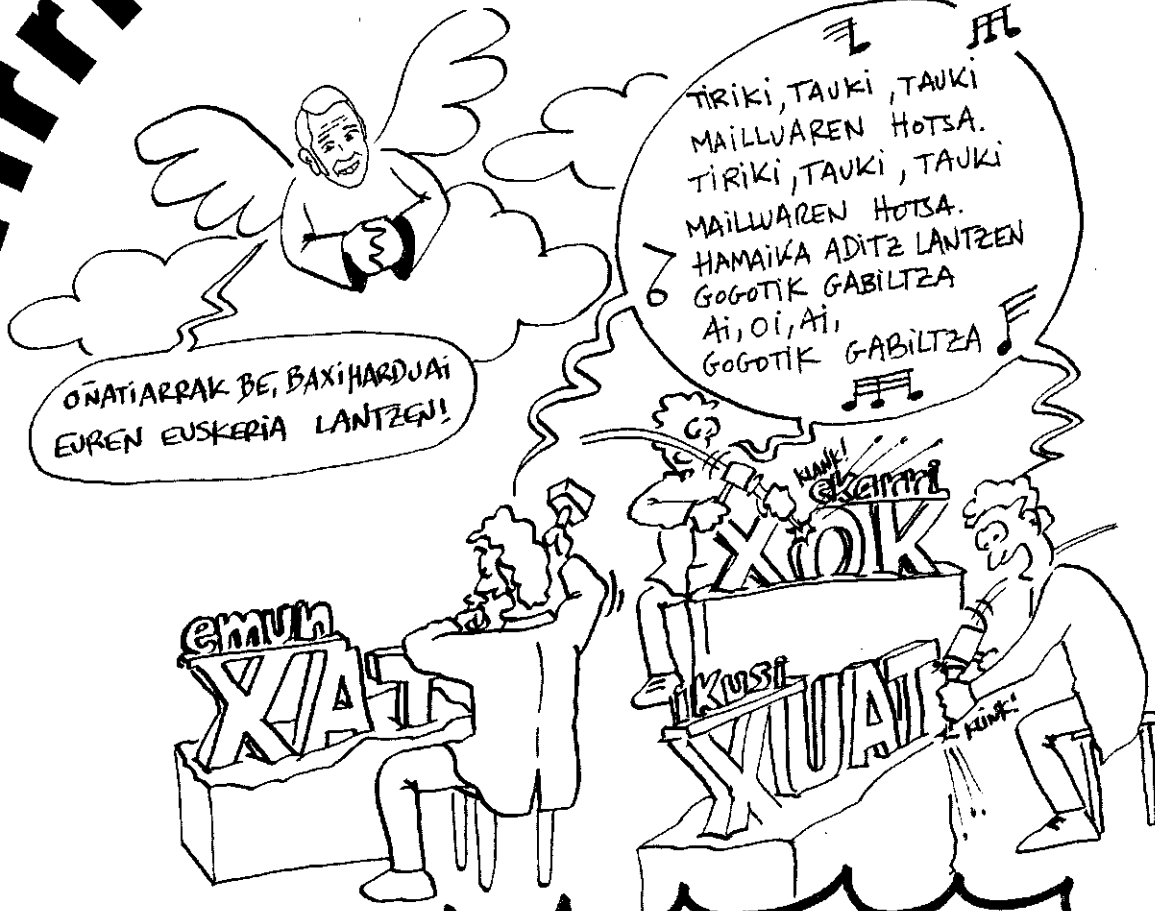 TiRiKi, TAUKi, TAUKi
MAiLLUAREN HOTSA.
TiRiKi, TAUKi, TAUKi
MAiLLUAREN HOTSA.
HAMAiKA ADiTZ LANTZEN
GOGOTiK GABiLTZA
Ai, Oi, Ai,
GOGOTiK GABiLTZA
OÑATiARRAK BE, BAXiHARDUAi
EUREN EUSKERiA LANTZEN!
KLANK!
ekarri
XOK
emun
XIAT
ikusi
XUAT
KLINK!